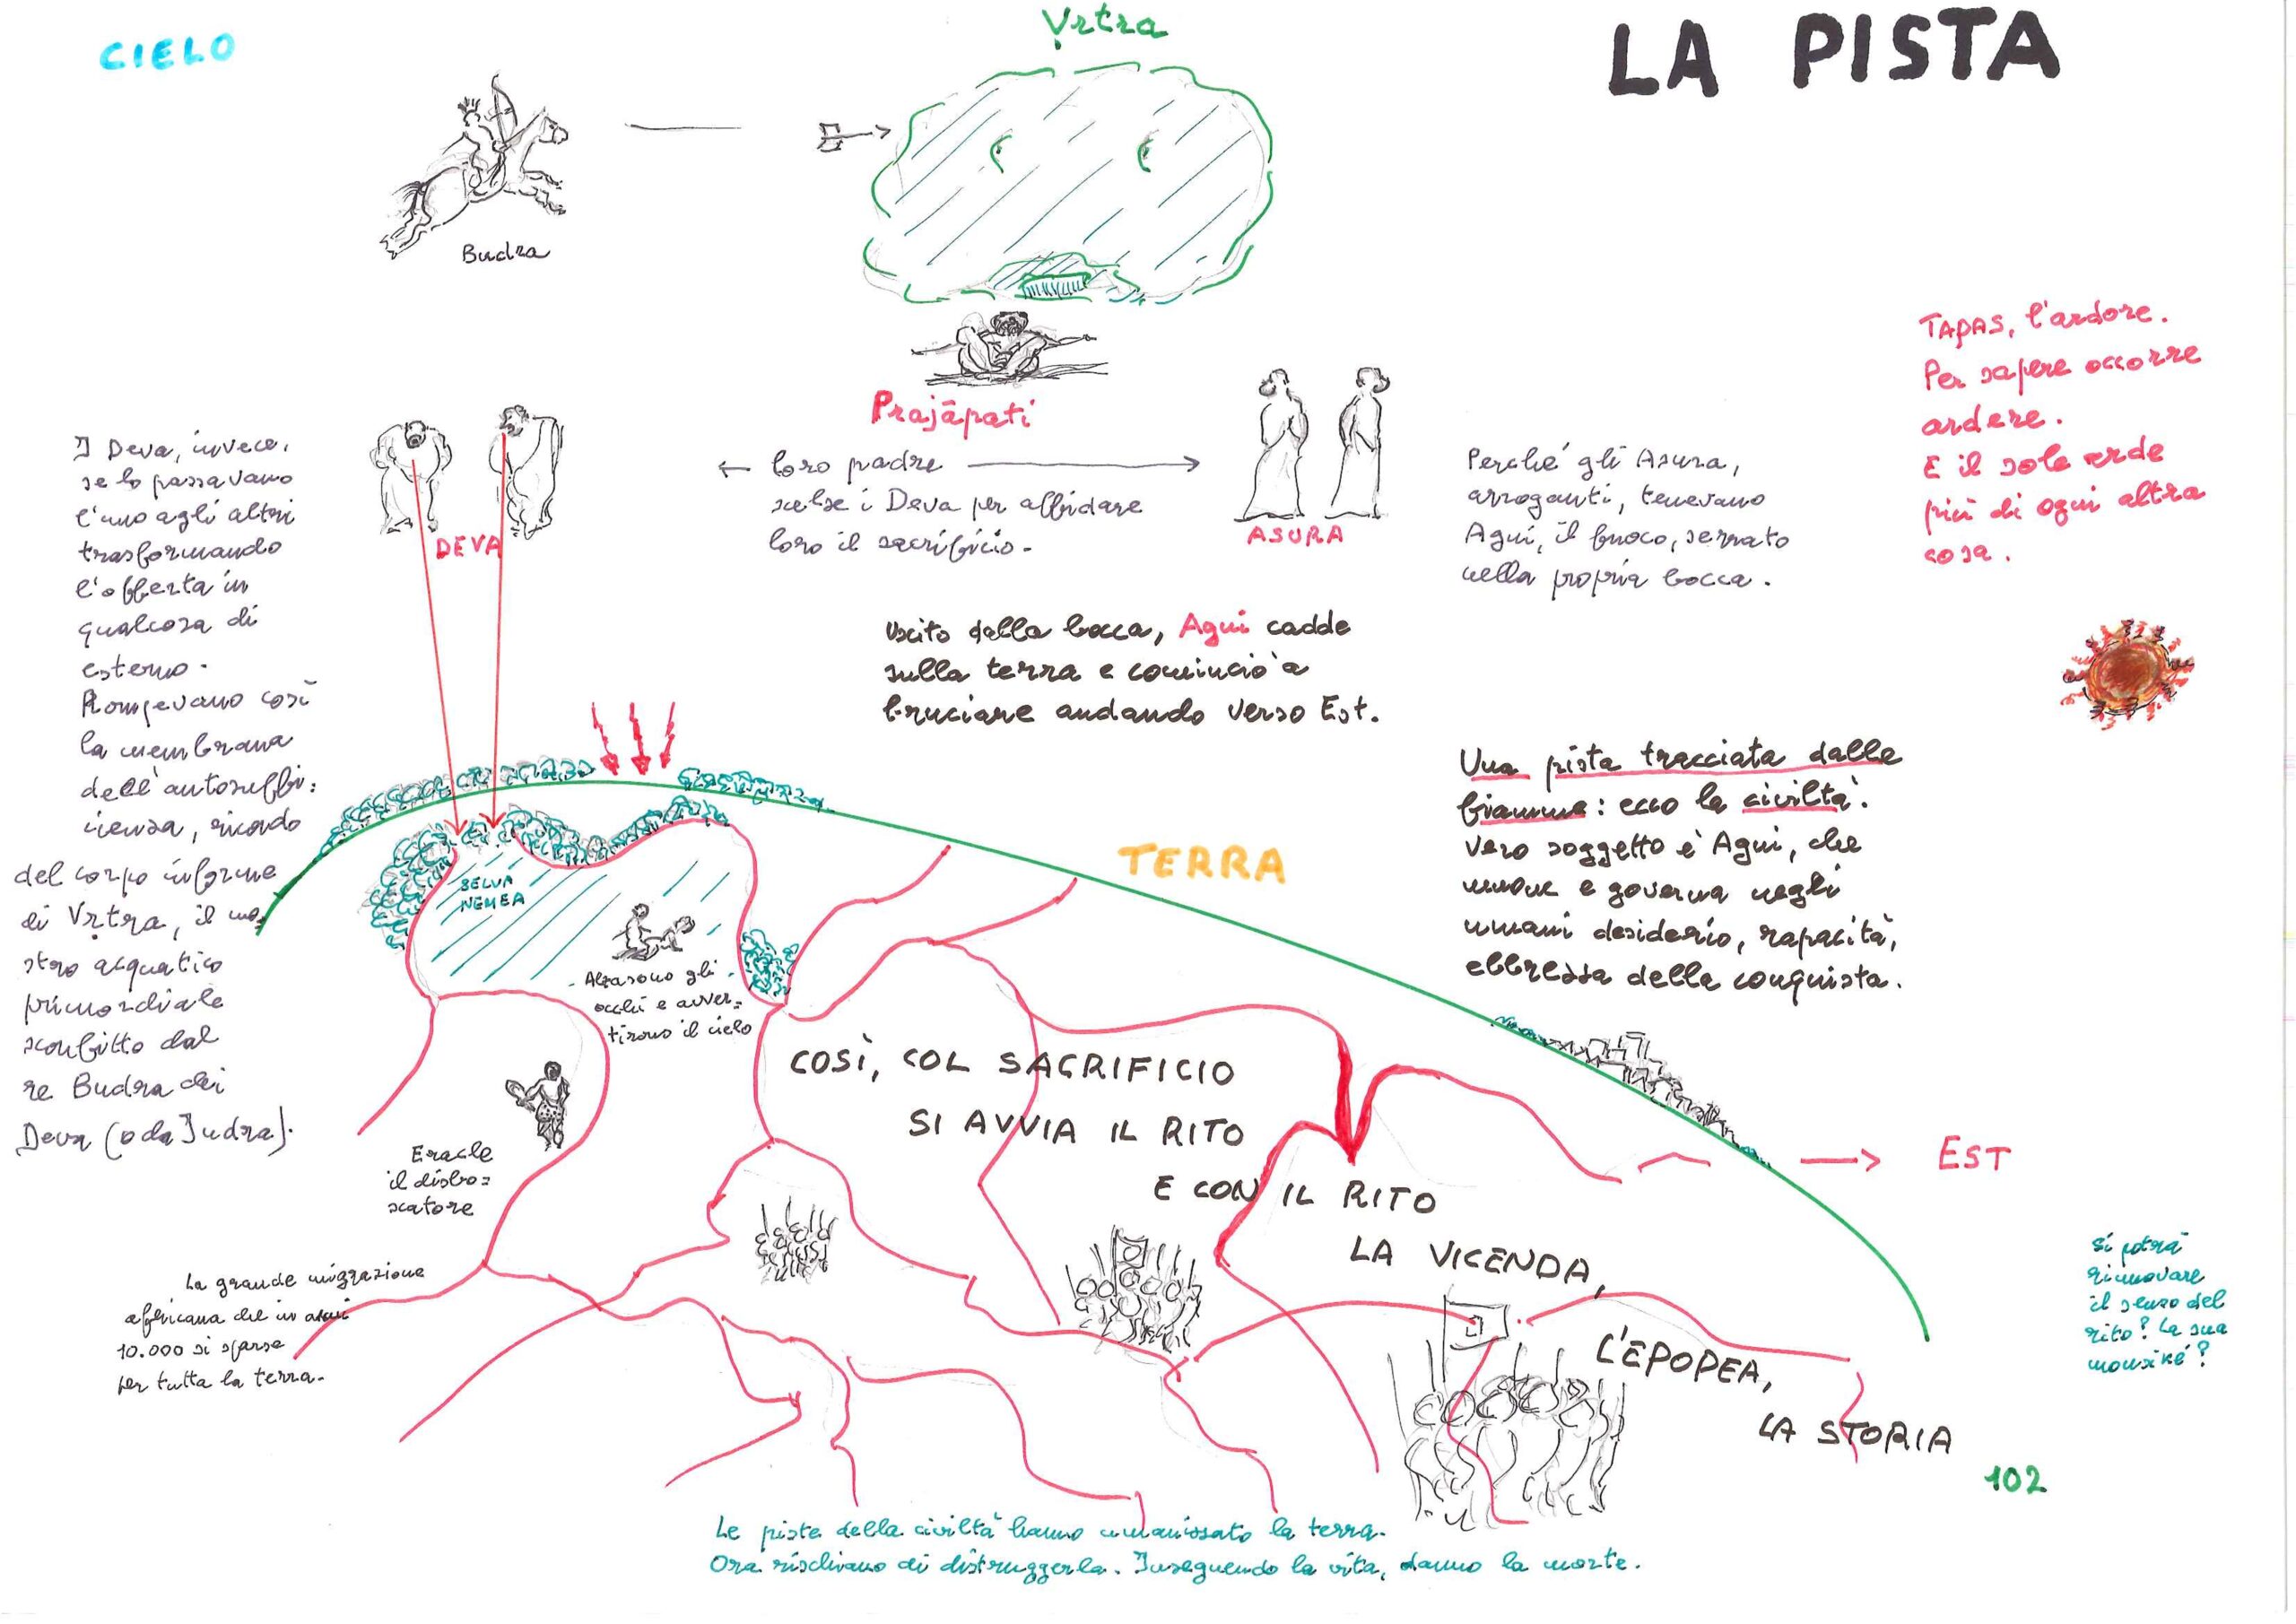 CIELO
Vṛtra
LA PISTA
Budra
TAPAS, l'ardore.
Per sapere occorre
ardere.
E il sole arde
più di ogni altra
cosa.
Prajāpati
← loro padre →
scelse i Deva per affidare
loro il sacrificio.
DEVA
ASURA
I Deva, invece,
se lo passavano
l'uno agli altri
trasformando
l'offerta in
qualcosa di
esterno.
Rompevano così
la membrana
dell'autosuffi=
cienza, ricordo
del corpo informe
di Vṛtra, il mo
stro acquatico
primordiale
sconfitto dal
re Budra dei
Deva (o da Indra).
Perché gli Asura,
arroganti, tenevano
Agni, il fuoco, serrato
nella propria bocca.
Uscito dalla bocca, Agni cadde
sulla terra e cominciò a
bruciare andando verso Est.
Una pista tracciata dalle
fiamme: ecco la civiltà.
Vero soggetto è Agni, che
muove e governa negli
umani desiderio, rapacità,
ebbrezza della conquista.
TERRA
SELVA
NEMEA
Alzarono gli
occhi e avver=
tirono il cielo
Eracle
il disbo=
scatore
La grande migrazione
africana che in anni
10.000 si sparse
per tutta la terra.
COSÌ, COL SACRIFICIO
SI AVVIA IL RITO
E CON IL RITO
LA VICENDA,
L'EPOPEA,
LA STORIA
→ EST
Si potrà
rinnovare
il senso del
rito? La sua
mousiké?
102
Le piste della civiltà hanno umanizzato la terra.
Ora rischiano di distruggerla. Inseguendo la vita, danno la morte.